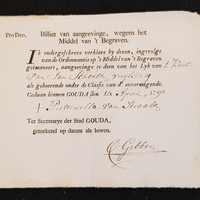 Pro Deo. Billiet van aangeevinge, wegens het
Middel van 't Begraven.
Ik ondergeschreve verklare by deezen, ingevolge
van de Ordonnantie op 't Middel van 't Begraven
geëmaneert, aangeevinge te doen van het Lyk van
als gehoorende onder de Classis van d' onvermogende.
Gedaan binnen GOUDA, den April 1791
Pieternella van
Ter Secretarye der Stad GOUDA,
geteekend op datum als boven.